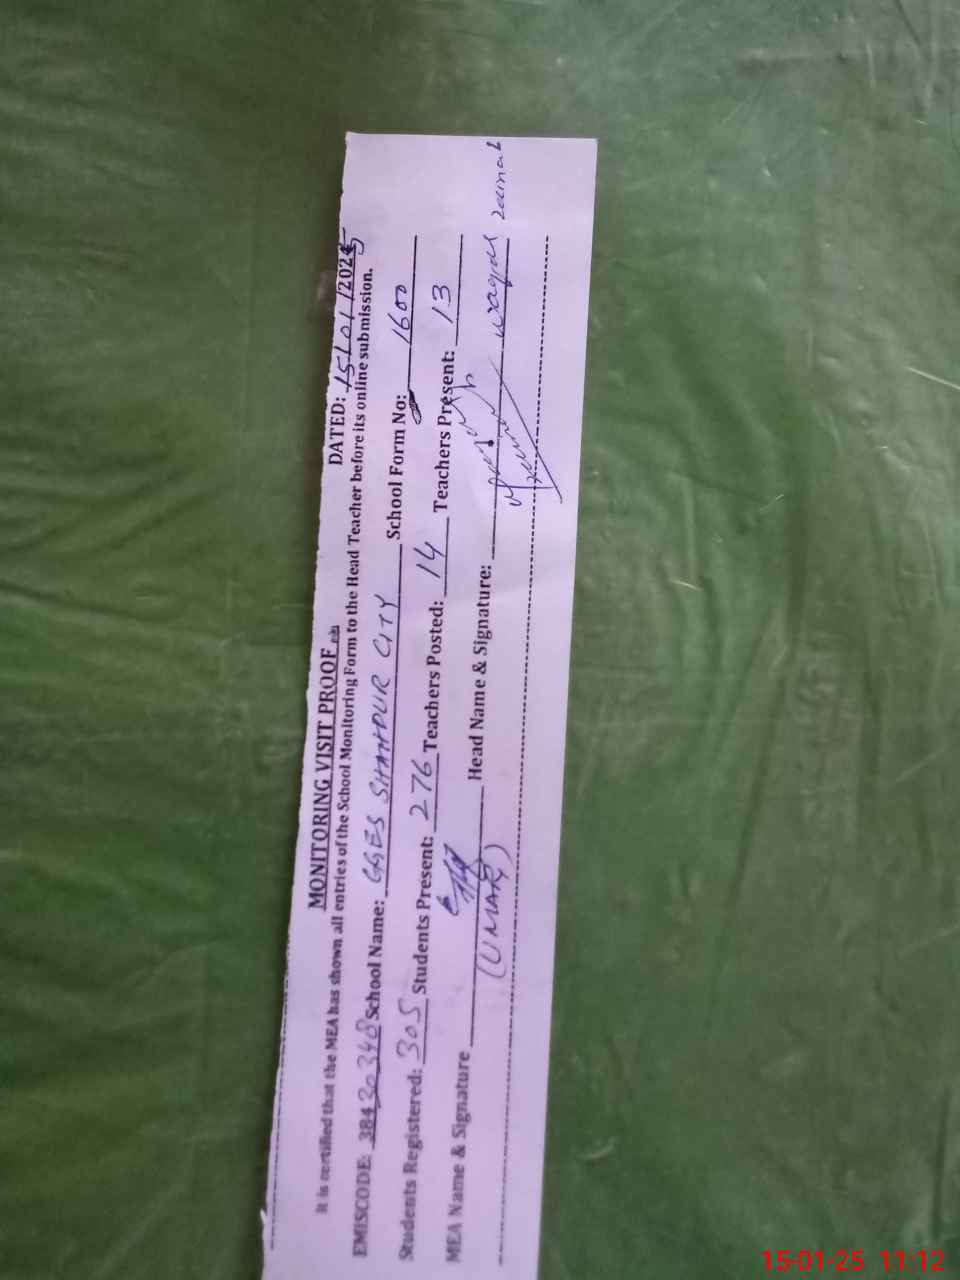 MONITORING VISIT PROOF DATED: 15/01/2025
It is certified that the MEA has shown all entries of the School Monitoring Form to the Head Teacher before its online submission.
EMISCODE: 38430348 School Name: GGES SHAHPUR CITY School Form No: 1600
Students Registered: 305 Students Present: 276 Teachers Posted: 14 Teachers Present: 13
MEA Name & Signature Head Name & Signature: waqar zainab
(UMAR)
15-01-25 11:12